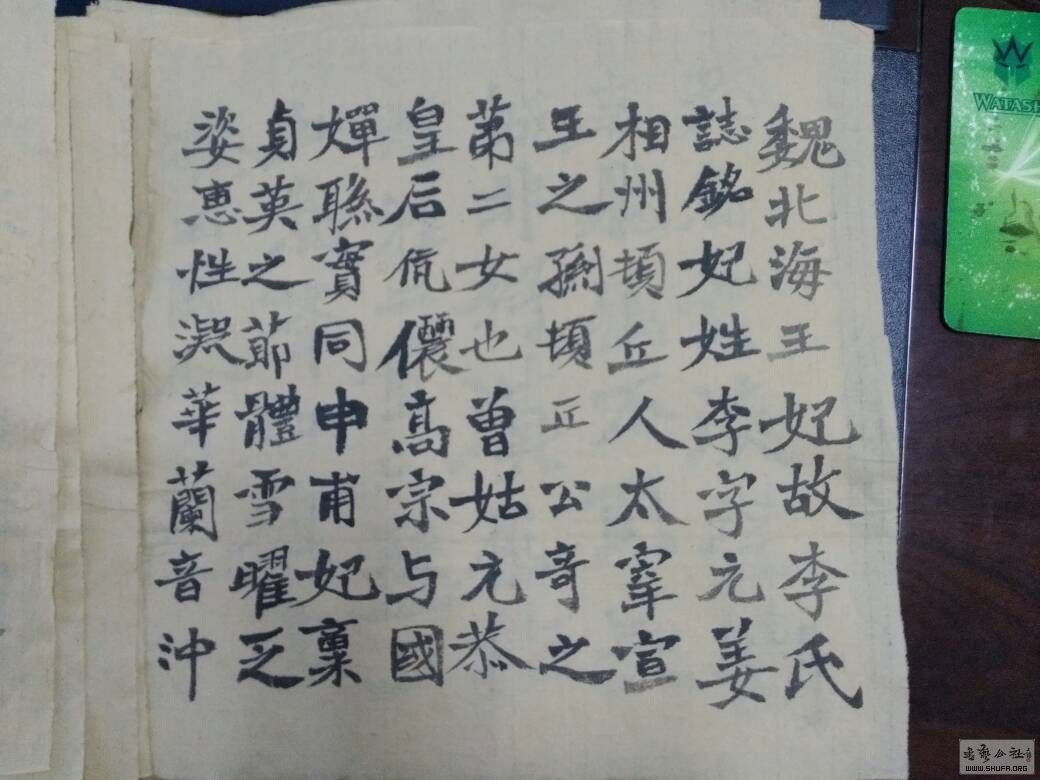 魏北海王妃故李氏
誌銘妃姓李字元姜
相州頓丘人太宰宣
王之孫頓丘公奇之
第二女也曾姑元恭
皇后伉儷高宗与國
嬋聯實同申甫妃稟
貞英之節體雪曜之
姿惠性淑華蘭音沖
WATASH
書藝公社
WWW.SHUFA.ORG